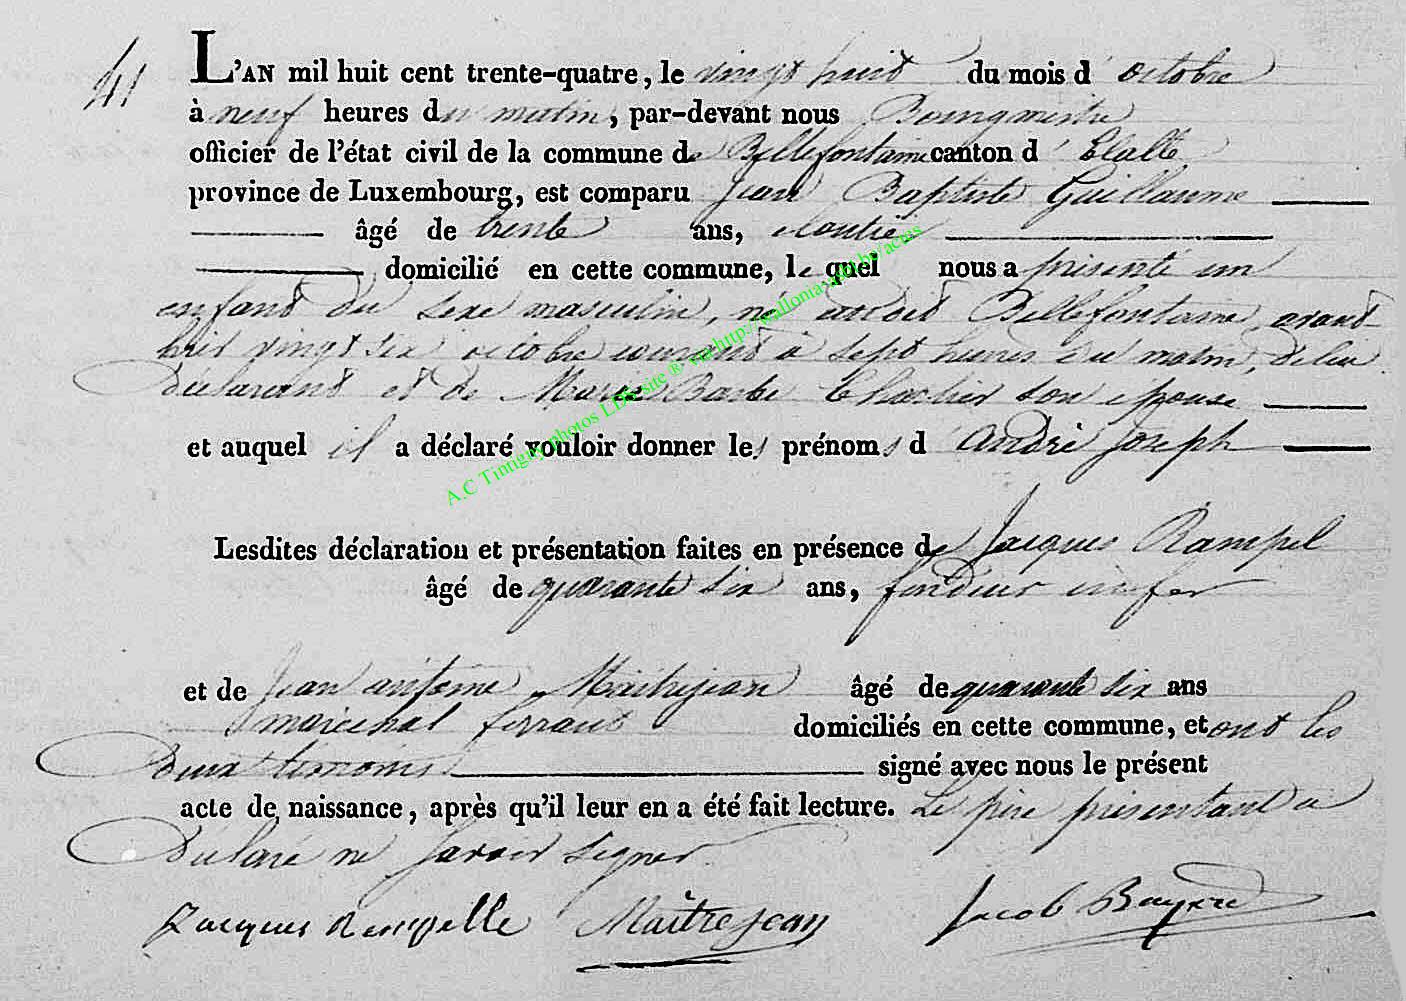 41
L'AN mil huit cent trente-quatre, le vingt huit du mois d' octobre
à neuf heures du matin, par-devant nous Bourgmestre
officier de l'état civil de la commune de Bellefontaine canton d' Etalle
province de Luxembourg, est comparu Jean Baptiste Guillaume
âgé de trente ans, cloutier
domicilié en cette commune, le quel nous a présenté un
enfant du sexe masculin, né audit Bellefontaine, avant
hier vingt six octobre courant à sept heures du matin, de lui
déclarant et de Marie Barbe son épouse
et auquel il a déclaré vouloir donner les prénoms d André Joseph
Lesdites déclaration et présentation faites en présence de Jacques Rampel
âgé de quarante six ans, fondeur en fer
et de Jean antoine Maitrejean âgé de quarante six ans
maréchal ferrant domiciliés en cette commune, et ont les
deux témoins signé avec nous le présent
acte de naissance, après qu'il leur en a été fait lecture. Le père présentant a
déclaré ne savoir signer.
Jacques Rampelle Maîtrejean Jacob Bayard
A.C Tintigny photos LDS site ® via http://wallonia-asbl.be/actus